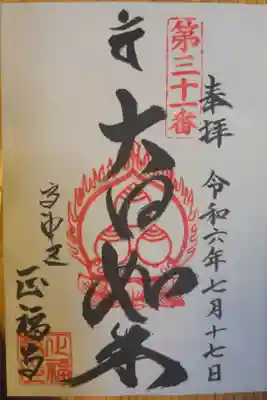 奉拝
令和六年七月十七日
第三十一番
大日如来
正福寺